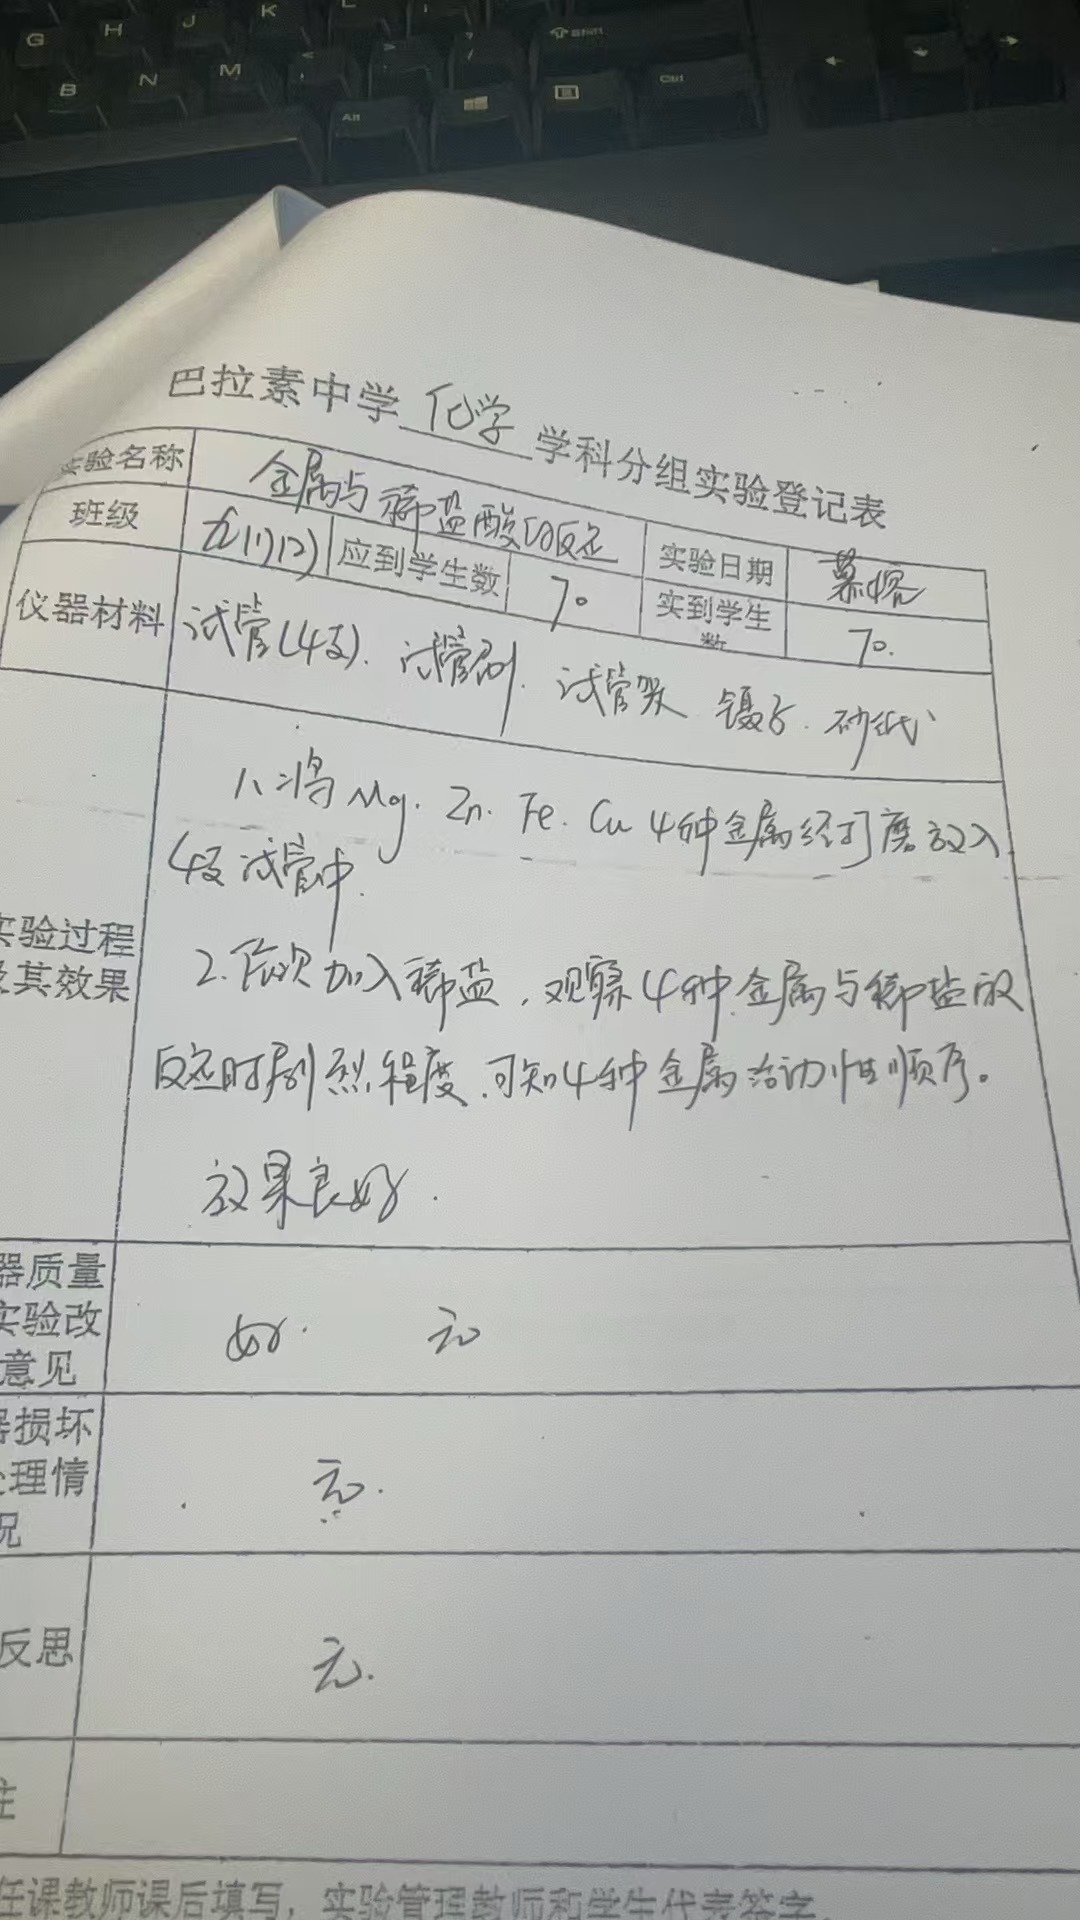 G H J K L
B N M < > ? ⇧Shift
Alt Ctrl
巴拉素中学 化学 学科分组实验登记表
实验名称 金属与稀盐酸的反应 实验日期
班级 九(1)(2) 应到学生数 70 实到学生数 70.
仪器材料 试管(4支). 试管刷. 试管架 镊子. 砂纸
1、将Mg. Zn. Fe. Cu 4种金属经打磨放入
4支试管中.
实验过程
及其效果
2.依次加入稀盐,观察4种金属与稀盐的
反应时剧烈程度.可知4种金属活动性顺序。
效果良好.
器质量
实验改
意见
好. 无
器损坏
处理情
况
无.
反思 无.
注
任课教师课后填写,实验管理教师和学生代表签字